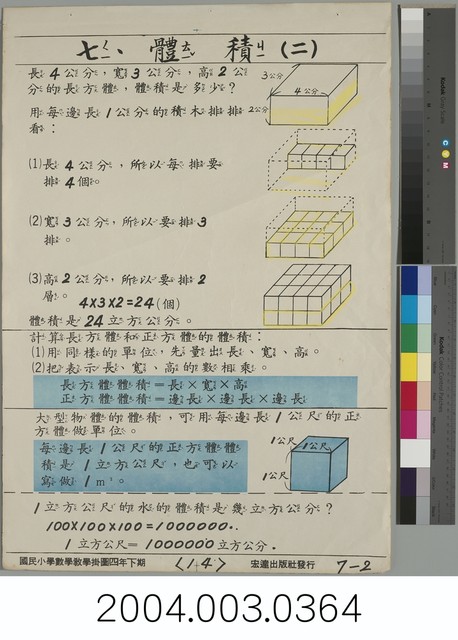 七、體積(二)
長4公分，寬3公分，高2公
分的長方體，體積是多少？
用每邊長1公分的積木排排
看：
3公分
4公分
2公分
(1)長4公分，所以每排要
排4個。
(2)寬3公分，所以要排3
排。
(3)高2公分，所以要排2
層。
4×3×2=24(個)
體積是24立方公分。
計算長方體和正方體的體積：
(1)用同樣的單位，先量出長、寬、高。
(2)把表示長、寬、高的數相乘。
長方體體積＝長×寬×高
正方體體積＝邊長×邊長×邊長
大型物體的體積，可用每邊長1公尺的正
方體做單位。
每邊長1公尺的正方體體
積是1立方公尺，也可以
寫做1m³。
1公尺
1公尺
1公尺
1立方公尺的水的體積是幾立方公分？
100×100×100=1000000..
1立方公尺=1000000立方公分.
國民小學數學教學掛圖四年下期
(14)
宏達出版社發行
7-2
Kodak
C Y M
Kodak Color Control Patches
2004.003.0364